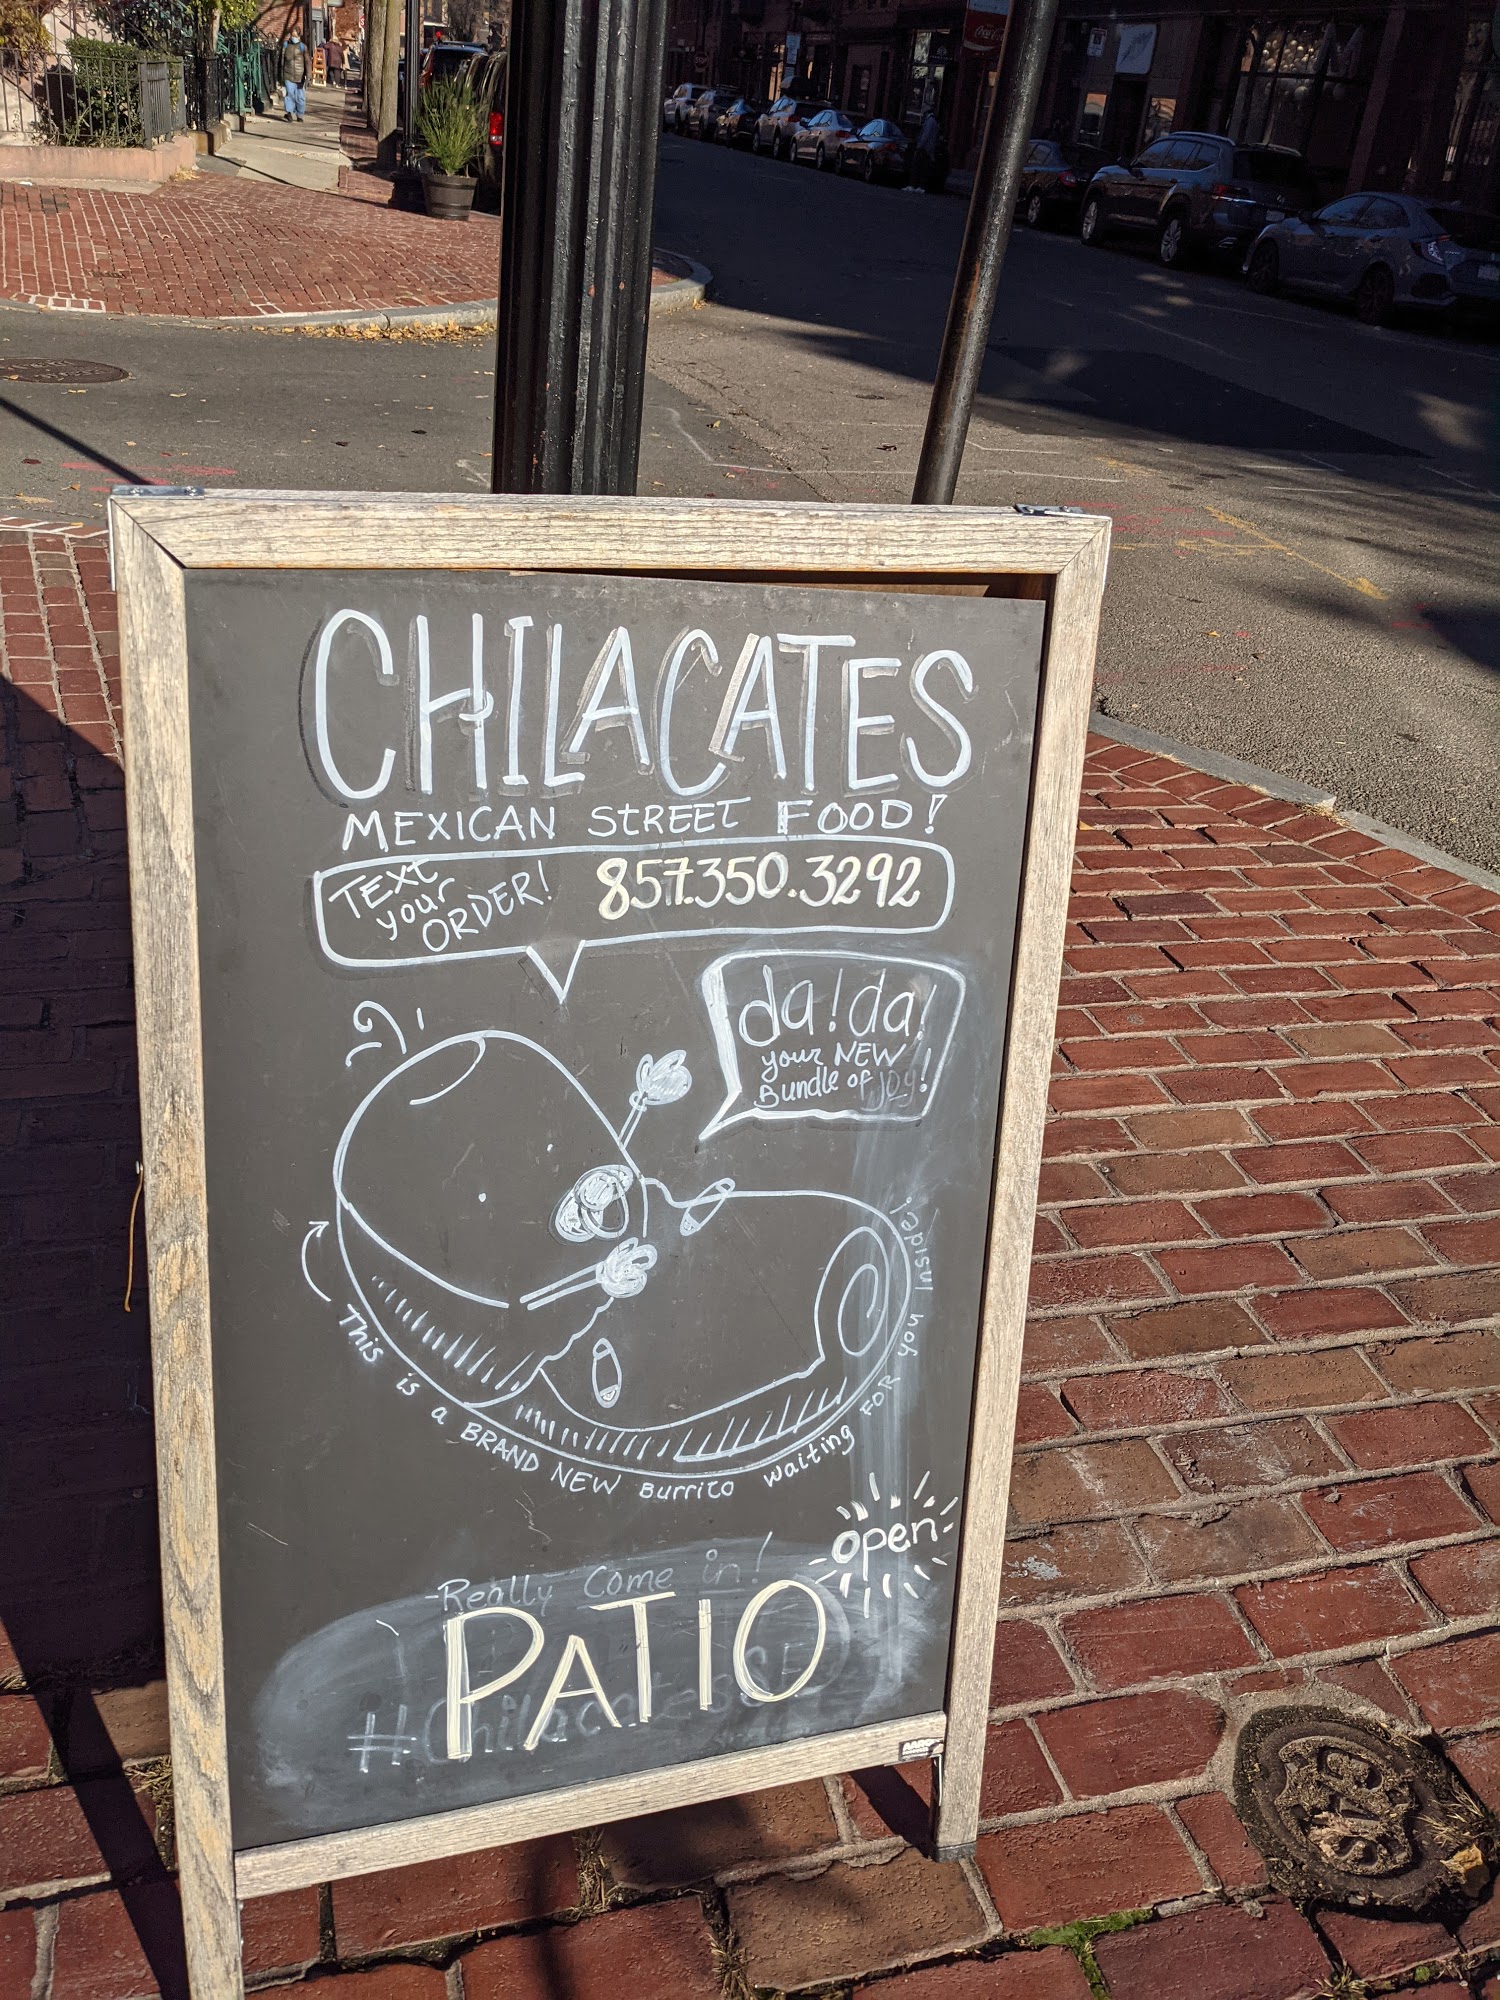 CHILACATES
MEXICAN STREET FOOD!
TEXT
your
ORDER!
857.350.3292
da!da!
your NEW
Bundle of joy!
This is a BRAND NEW Burrito waiting FOR you Inside!
open
-Really Come in!
PATIO